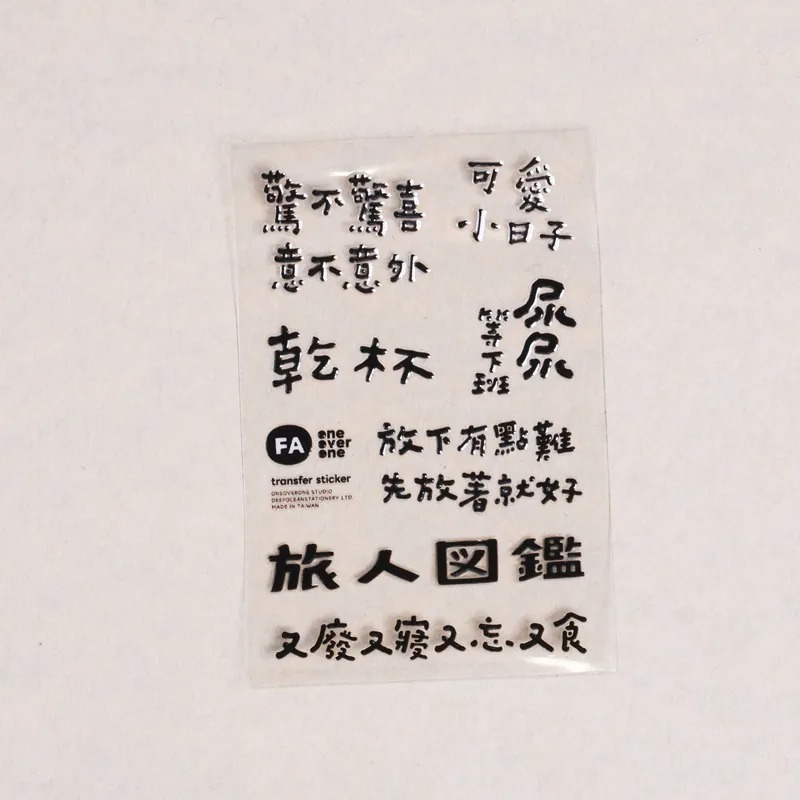 驚不驚喜
意不意外
可愛
小日子
乾杯
尿尿
等下班
FA
one
over
one
transfer sticker
ONEOVERONE STUDIO
DEEPOCEANSTATIONERY LTD.
MADE IN TAIWAN
放下有點難
先放著就好
旅人図鑑
又廢又寢又忘又食